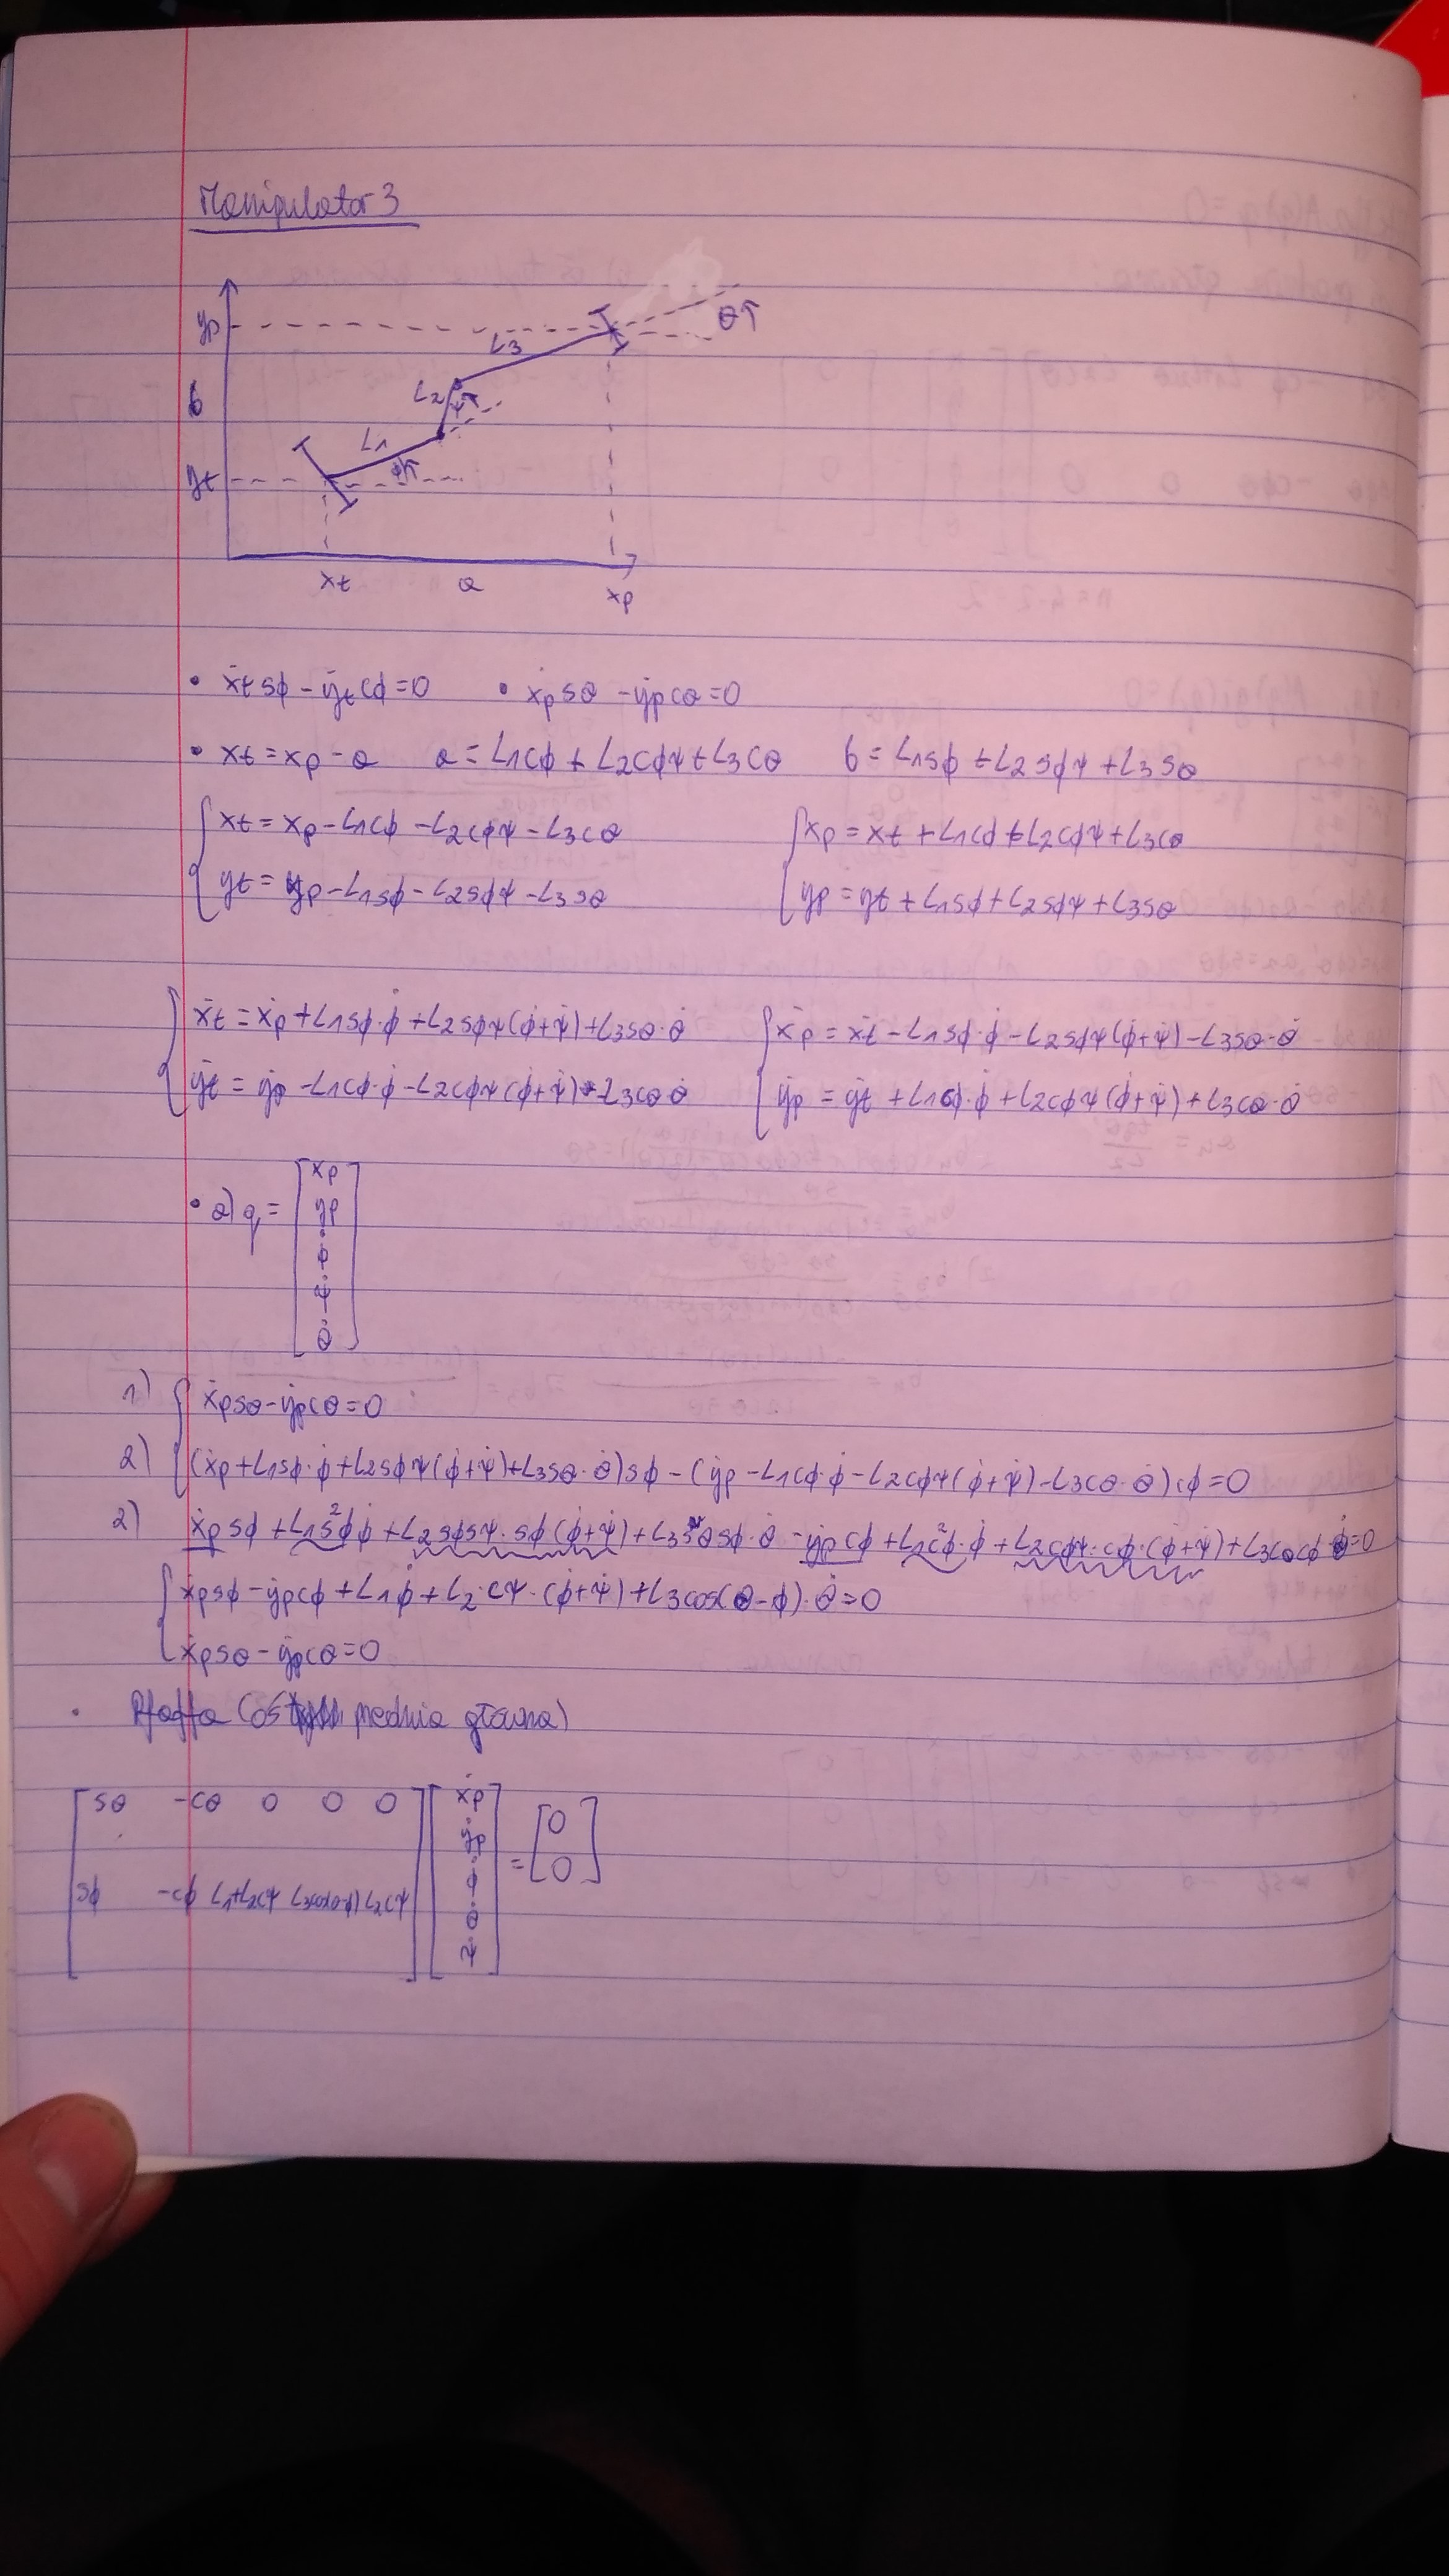 Manipulator 3
yp
θ↑
L3
b
L2
ψ
L1
ϕ↑
yt
xt
a
xp
• ẋt sϕ - ẏt cϕ = 0 • ẋp sθ - ẏp cθ = 0
• xt = xp - a a = L1cϕ + L2cϕψ + L3cθ b = L1sϕ + L2sϕψ + L3sθ
{ xt = xp - L1cϕ - L2cϕψ - L3cθ { xp = xt + L1cϕ + L2cϕψ + L3cθ
yt = yp - L1sϕ - L2sϕψ - L3sθ yp = yt + L1sϕ + L2sϕψ + L3sθ
{ ẋt = ẋp + L1sϕ·ϕ̇ + L2sϕψ(ϕ̇+ψ̇) + L3sθ·θ̇ { ẋp = ẋt - L1sϕ·ϕ̇ - L2sϕψ(ϕ̇+ψ̇) - L3sθ·θ̇
ẏt = ẏp - L1cϕ·ϕ̇ - L2cϕψ(ϕ̇+ψ̇) - L3cθ θ̇ ẏp = ẏt + L1cϕ·ϕ̇ + L2cϕψ(ϕ̇+ψ̇) + L3cθ·θ̇
• a) q = [ xp
yp
ϕ̇
ψ̇
θ̇ ]
1) { ẋp sθ - ẏp cθ = 0
2) (ẋp + L1sϕ·ϕ̇ + L2sϕψ(ϕ̇+ψ̇) + L3sθ·θ̇)sϕ - (ẏp - L1cϕ·ϕ̇ - L2cϕψ(ϕ̇+ψ̇) - L3cθ·θ̇)cϕ = 0
2) ẋp sϕ + L1s²ϕϕ̇ + L2sϕsψ·sϕ(ϕ̇+ψ̇) + L3sθsϕ·θ̇ - ẏp cϕ + L1c²ϕ·ϕ̇ + L2cϕψ·cϕ·(ϕ̇+ψ̇) + L3cθcϕ θ̇ = 0
{ ẋp sϕ - ẏp cϕ + L1ϕ̇ + L2·cψ·(ϕ̇+ψ̇) + L3cos(θ-ϕ)·θ̇ = 0
ẋp sθ - ẏp cθ = 0
• Pfaffa (oś przednia główna)
[ sθ -cθ 0 0 0 ] [ ẋp
ẏp ] = [ 0
sϕ -cϕ L1+L2cψ L3cos(θ-ϕ) L2cψ ϕ̇ 0 ]
θ̇
ψ̇